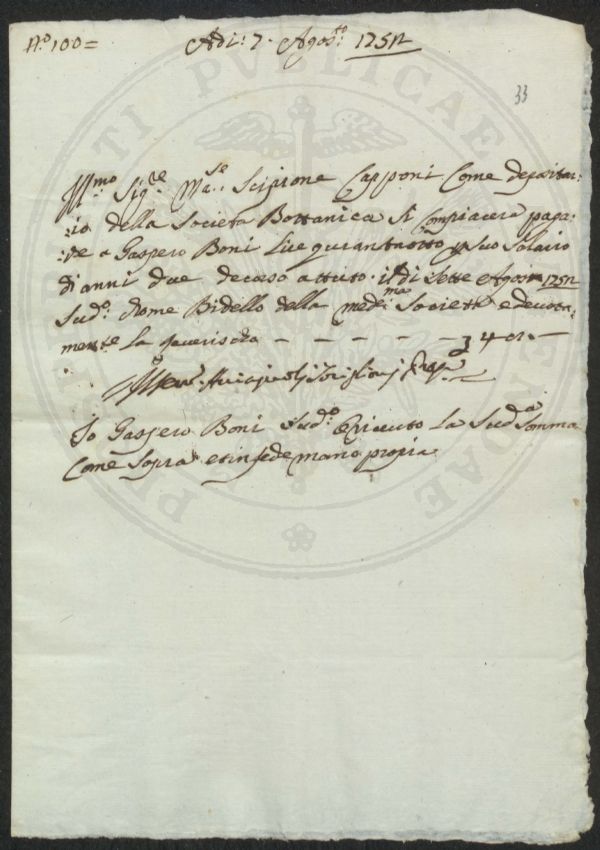 N.o 100=
Adì: 7. Agos:to 175
33
Ill:mo Sig.re Ma:se Scipione Capponi Come deposita:
:rio della Società Bottanica Si Compiacerà paga:
:re a Gaspero Boni Lire quarantaotto p Suo Salario
di anni due decorso a tutto il dì Sette Agosto 175
Sud:o Come Bidello della med:ma Società e devota:
mente la riverisco - - - - - - 48.-
Io Gaspero Boni Sud:o ò riceuto la Sud:a Somma
Come Sopra et in fede mano propria
PUBLICAE